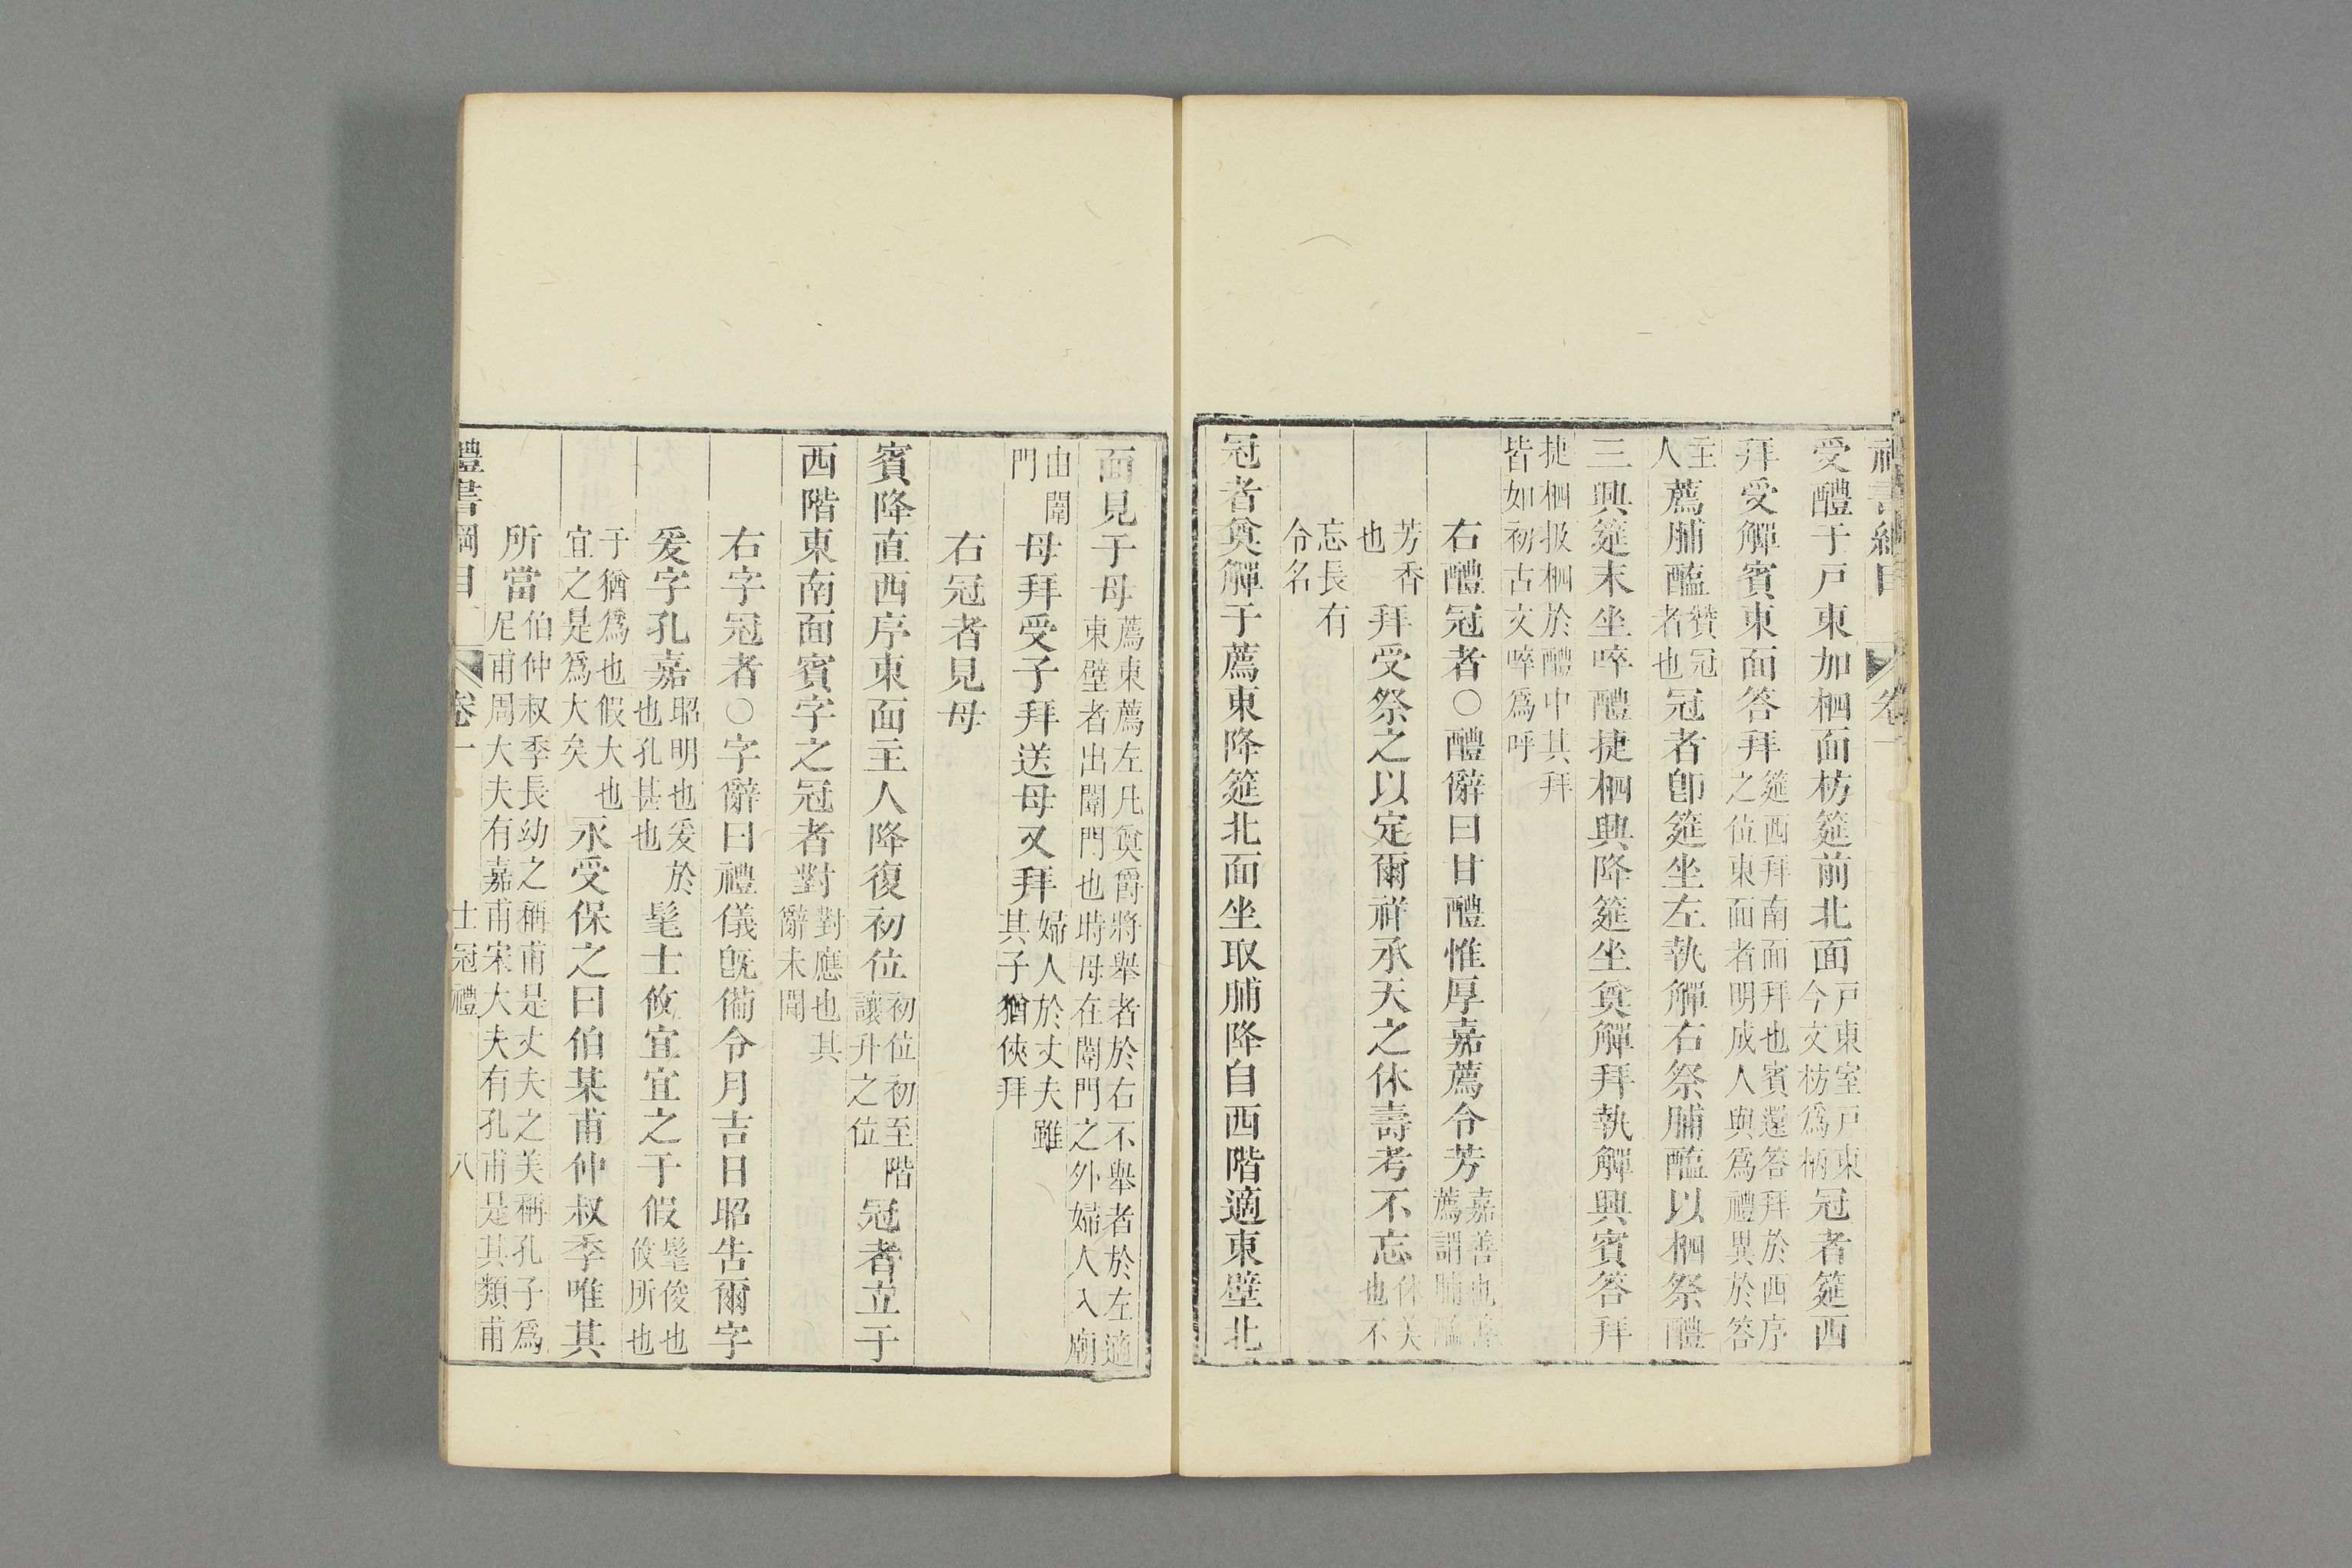 禮書綱目 卷一
受醴于戸東加柶面枋筵前北面戸東室戸東今文枋爲柄冠者筵西
拜受觶賓東面答拜筵西拜南面拜也賓還答拜於西序之位東面者明成人與爲禮異於答
主人薦脯醢贊冠者也冠者卽筵坐左執觶右祭脯醢以柶祭醴
三興筵末坐啐醴捷柶興降筵坐奠觶拜執觶興賓答拜
捷柶扱柶於醴中其拜皆如初古文啐爲呼
右醴冠者○醴辭曰甘醴惟厚嘉薦令芳嘉善也善薦謂脯醢
芳香也拜受祭之以定爾祥承天之休壽考不忘休美也不
忘長有令名
冠者奠觶于薦東降筵北面坐取脯降自西階適東壁北
面見于母薦東薦左凡奠爵將舉者於右不舉者於左適東壁者出闈門也時母在闈門之外婦人入廟
由闈門母拜受子拜送母又拜婦人於丈夫雖其子猶俠拜
右冠者見母
賓降直西序東面主人降復初位初位初至階讓升之位冠者立于
西階東南面賓字之冠者對對應也其辭未聞
右字冠者○字辭曰禮儀旣備令月吉日昭告爾字
爰字孔嘉昭明也爰於也孔甚也髦士攸宜宜之于假髦俊也攸所也
于猶爲也假大也宜之是爲大矣永受保之曰伯某甫仲叔季唯其
所當伯仲叔季長幼之稱甫是丈夫之美稱孔子爲尼甫周大夫有嘉甫宋大夫有孔甫是其類甫
禮書綱目 卷一 士冠禮 八